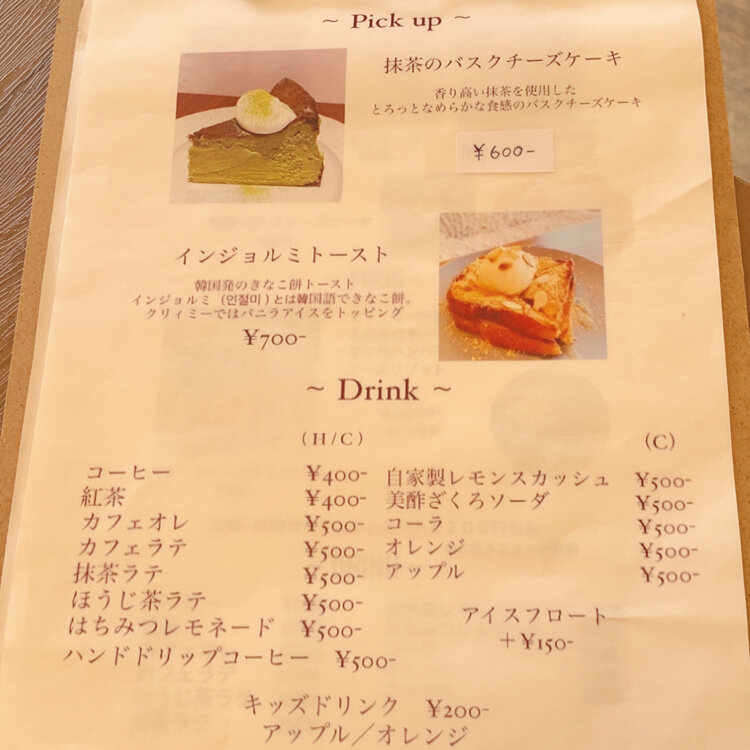 ~ Pick up ~
抹茶のバスクチーズケーキ
香り高い抹茶を使用した
とろっとなめらかな食感のバスクチーズケーキ
¥600-
インジョルミトースト
韓国発のきなこ餅トースト
インジョルミ (인절미) とは韓国語できなこ餅。
クリィミーではバニラアイスをトッピング
¥700-
~ Drink ~
(H/C)
コーヒー ¥400-
紅茶 ¥400-
カフェオレ ¥500-
カフェラテ ¥500-
抹茶ラテ ¥500-
ほうじ茶ラテ ¥500-
はちみつレモネード ¥500-
ハンドドリップコーヒー ¥500-
(C)
自家製レモンスカッシュ ¥500-
美酢ざくろソーダ ¥500-
コーラ ¥500-
オレンジ ¥500-
アップル ¥500-
アイスフロート
+¥150-
キッズドリンク ¥200-
アップル/オレンジ